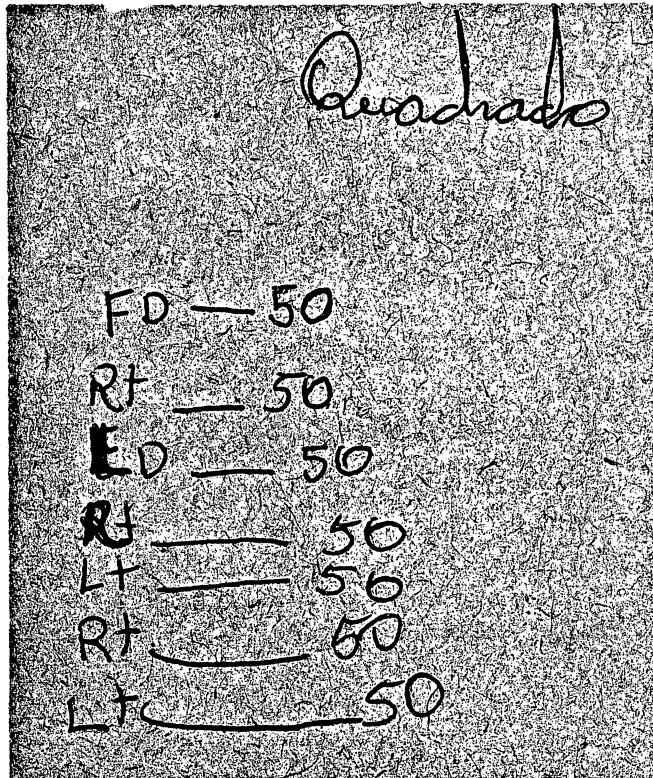 Quadrado
FD — 50
Rt __ 50
FD __ 50
Rt __ 50
Lt __ 50
Rt __ 50
Lt __ 50